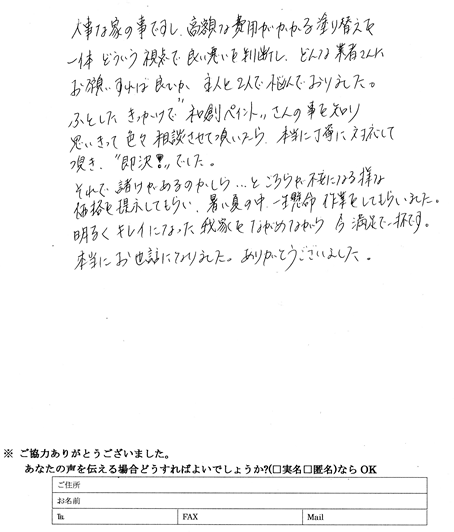 大事な家の事ですし、高額な費用がかかる塗り替えを
一体 どういう視点で良い悪いを判断し、どんな業者さんに
お願いすれば良いか 主人と2人で悩んでおりました。
ふとした きっかけで"和創ペイント"さんの事を知り
思いきって 色々 相談させて頂いたら、本当に丁寧に対応して
頂き、"即決!"でした。
それで諸けがあるのかしら…と こちらが不安になる様な
価格を提示してもらい、暑い夏の中、一生懸命 作業をしてもらいました。
明るく キレイになった 我家を ながめながら 今 満足で一杯です。
本当に お世話になりました。ありがとうございました。
※ ご協力ありがとうございました。
あなたの声を伝える場合どうすればよいでしょうか?(□実名□匿名)ならOK
ご住所
お名前
℡ FAX Mail